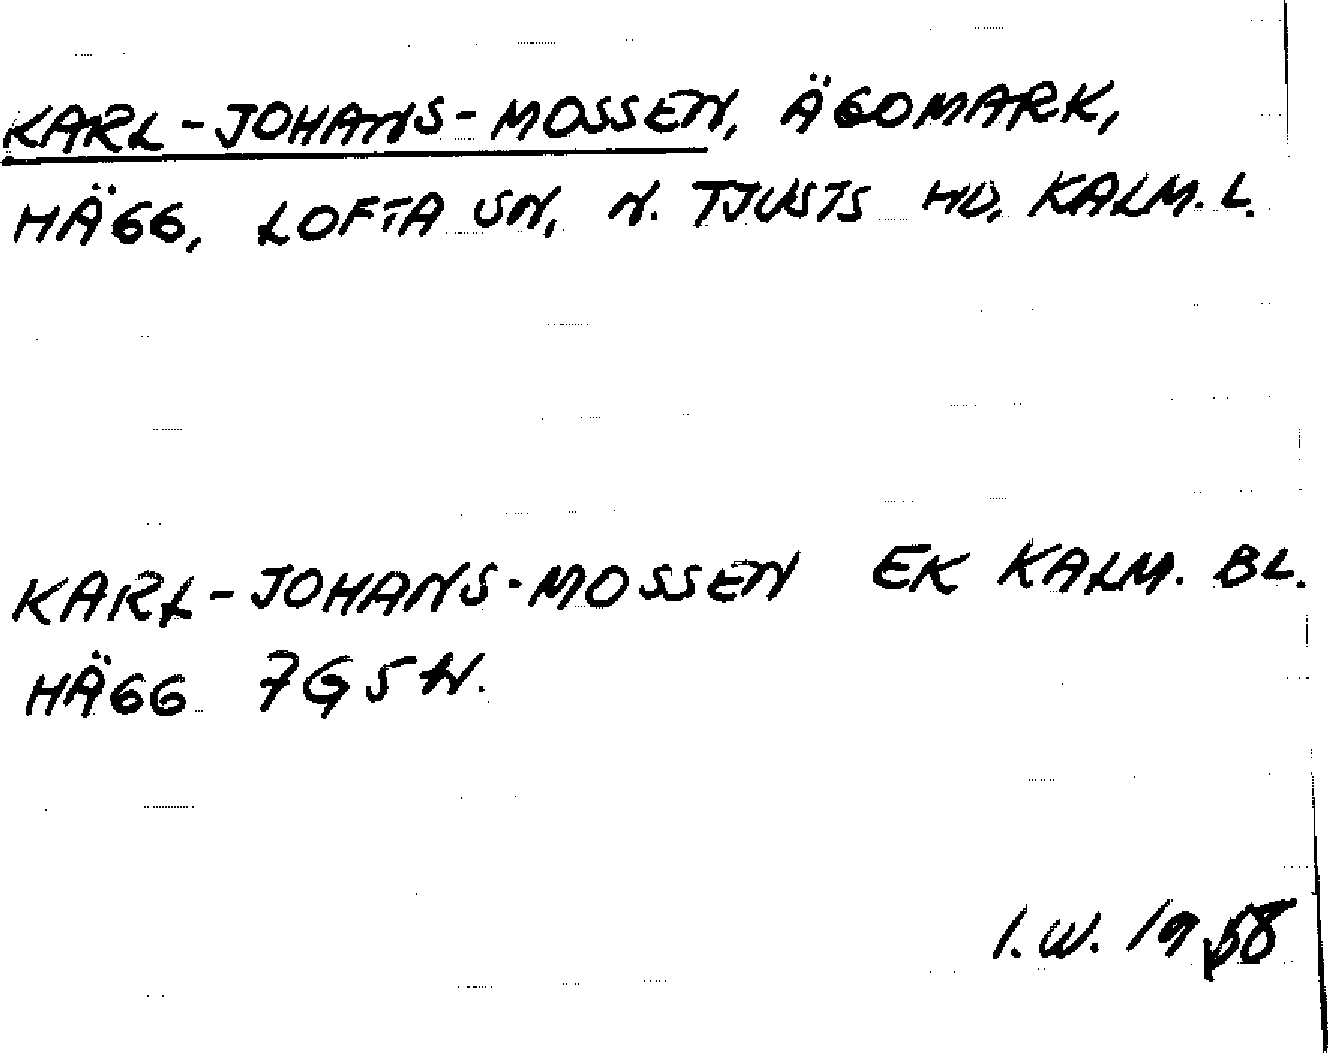 KARL-JOHANS-MOSSEN, ÄGOMARK,
HÄGG, LOFTA SN, N. TJUSTS HD, KALM. L.
KARL-JOHANS-MOSSEN EK KALM. BL.
HÄGG 7G5H.
I.W. 1958